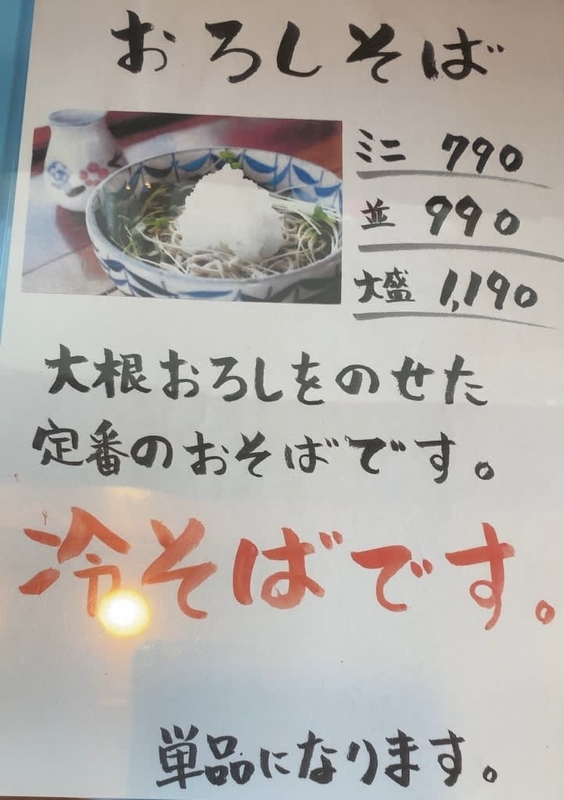 おろしそば
ミニ 790
並 990
大盛 1,190
大根おろしをのせた
定番のおそばです。
冷そばです。
単品になります。